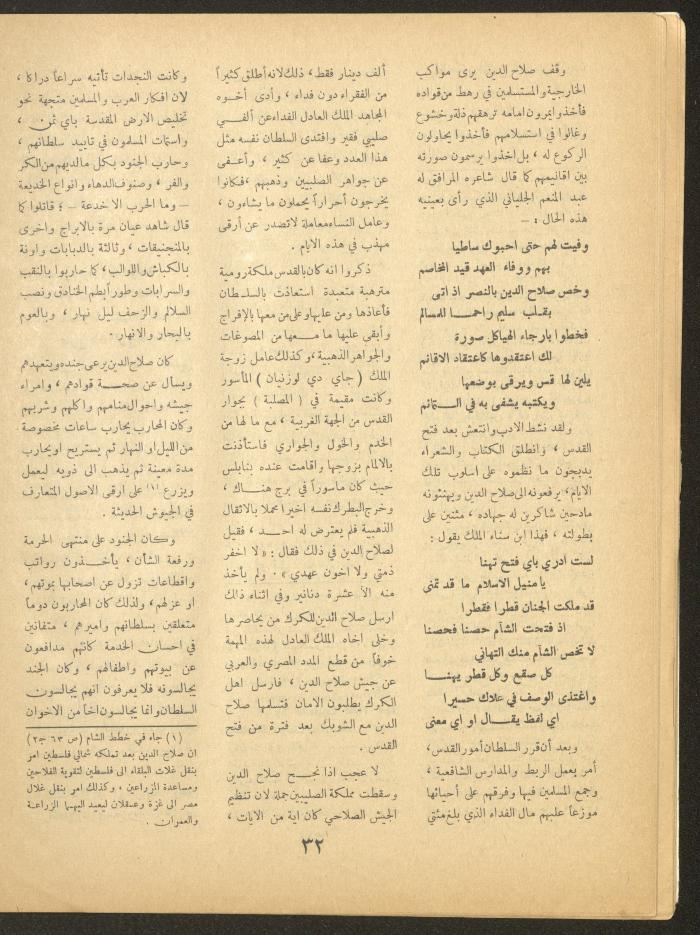 وقف صلاح الدين يرى مواكب
الخارجية والمستسلمين في رهط من قواده
فأخذوا يمرون امامه ترهقهم ذلة وخشوع
وغالوا في استسلامهم فأخذوا يحاولون
الركوع له ، بل اخذوا يرسمون صورته
بين اقانيمهم كما قال شاعره المرافق له
عبد المنعم الجلياني الذي رأى بعينيه
هذه الحال : —
وفيت لهم حتى احبوك ساطيا
بهم ووفاء العهد قيد المخاصم
وخص صلاح الدين بالنصر اذ اتى
بقلب سليم راحمـــا للمسالم
فخطوا بارجاء الهياكل صورة
لك اعتقدوها كاعتقاد الاقانم
يلين لها قس ويرقى بوضعها
ويكتبه يشفى به في الـــتمائم
ولقد نشط الادب وانتعش بعد فتح
القدس ، وانطلق الكتاب والشعراء
يدبجون ما نظموه على اسلوب تلك
الايام ، يرفعونه الى صلاح الدين ويهنئونه
مادحين شاكرين له جهاده ، مثنين على
بطولته ، فهذا ابن سناء الملك يقول :
لست ادري باي فتح تهنا
يا منيل الاسلام ما قد تمنى
قد ملكت الجنان قطرا فقطرا
اذ فتحت الشآم حصنا فحصنا
لا تخص الشآم منك التهاني
كل صقع وكل قطر يهنــا
واغتذى الوصف في علاك حسيرا
اي لفظ يقــال او اي معنى
وبعد أن قرر السلطان أمور القدس ،
أمر بعمل الربط والمدارس الشافعية ،
وجمع المسلمين فيها وفرقهم على أحيائها
موزعاً عليهم مال الفداء الذي بلغ مئتي
ألف دينار فقط ، ذلك لانه أطلق كثيراً
من الفقراء دون فداء ، وأدى أخــوه
المجاهد الملك العادل الفداء عن ألفــي
صليبي فقير وافتدى السلطان نفسه مثل
هذا العدد وعفا عن كثير ، وأعــفى
عن جواهر الصليبيين وذهبهم ، فكانوا
يخرجون أحراراً يحملون ما يشاءون ،
وعامل النساء معاملة لا تصدر عن أرقى
مهذب في هذه الايام .
ذكروا انه كان بالقدس ملكة رومية
مترهبة متعبدة استعاذت بالسلــطان
فأعاذها ومن عليها وعلى من معها بالإفراج
وأبقى عليها ما مـــعها من المصوغات
والجواهر الذهبية ، وكذلك عامل زوجة
الملك ( جاي دي لوزنيان ) المأسور
وكانت مقيمة في ( المصلبة ) بجوار
القدس من الجهة الغربية ، مع ما لها من
الخدم والخول والجواري فاستأذنت
بالالمام بزوجها واقامت عنده بنابلس
حيث كان ماسوراً في برج هنــاك ،
وخرج البطرك نفسه اخيرا محملا بالاثقال
الذهبية فلم يعترض له احــد ، فقيل
لصلاح الدين في ذلك فقال : « لا اخفر
ذمتي ولا اخون عهدي » . ولم يأخذ
منه الا عشرة دنانير وفي اثناء ذلك
ارسل صلاح الدين للكرك من يحاصرها
وخلى اخاه الملك العادل لهذه المهمة
خوفاً من قطع المدد المصري والعربي
عن جيش صلاح الدين ، فارسل اهل
الكرك يطلبون الامان فتسلمها صلاح
الدين مع الشوبك بعد فترة من فتح
القدس .
لا عجب اذا نجــح صلاح الدين
وسقطت مملكة الصليبيين جملة لان تنظيم
الجيش الصلاحي كان اية من الايات ،
وكانت النجدات تأتيه سراعاً دراكا ،
لان افكار العرب والمسلمين متجهة نحو
تخليص الارض المقدسة باي ثمن .
واستمات المسلمون في تاييد سلطانهم ،
وحارب الجنود بكل ما لديهم من الكر
والفر ، وصنوف الدهاء وانواع الخديعة
— وما الحرب الا خدعة — ؛ قاتلوا كما
قال شاهد عيان مرة بالابراج واخرى
بالمنجنيقات ، وثالثة بالدبابات واونة
بالكباش واللوالب ، كما حاربوا بالنقب
والسرابات وطوراً بطم الخنادق ونصب
السلالم والزحف ليل نهار ، وبالعوم
بالبحار والانهار .
كان صلاح الدين يرعى جنده ويتعهدهم
ويسأل عن صحـــة قوادهم ، وامراء
جيشه واحوال منامهم واكلهم وشربهم
وكان المحارب يحارب ساعات مخصوصة
من الليل او النهار ثم يستريح او يحارب
مدة معينة ثم يذهب الى ذويه ليعمل
ويزرع (١) على ارقى الاصول المتعارف
في الجيوش الحديثة .
وكان الجنود على منتهى الحرمة
ورفعة الشأن ، يأخــذون رواتب
واقطاعات تزول عن اصحابها بموتهم ،
او عزلهم ، ولذلك كان المحاربون دوماً
متعلقين بسلطانهم واميرهم ، متفانين
في احسان الخدمة كانهم مدافعون
عن بيوتهم واطفالهم ، وكان الجند
يجالسونه فلا يعرفون انهم يجالسون
السلطان وانما يجالسون اخاً من الاخوان
(١) جاء في خطط الشام (ص ٦٣ ج٢)
ان صلاح الدين بعد تملكه شمالي فلسطين امر
بنقل غلات البلقاء الى فلسطين لتقوية الفلاحين
ومساعدة الزراعين ، وكذلك امر بنقل غلال
مصر الى غزة وعسقلان ليعيد اليهما الزراعة
والعمران .
٣٢